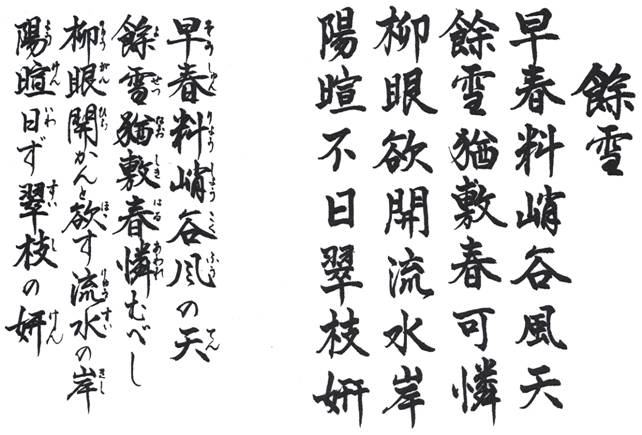 餘雪
早春料峭谷風天
餘雪猶敷春可憐
柳眼欲開流水岸
陽暄不日翠枝妍
早春料峭谷風の天
餘雪猶敷春憐むべし
柳眼開かんと欲す流水の岸
陽暄日ず翠枝の妍